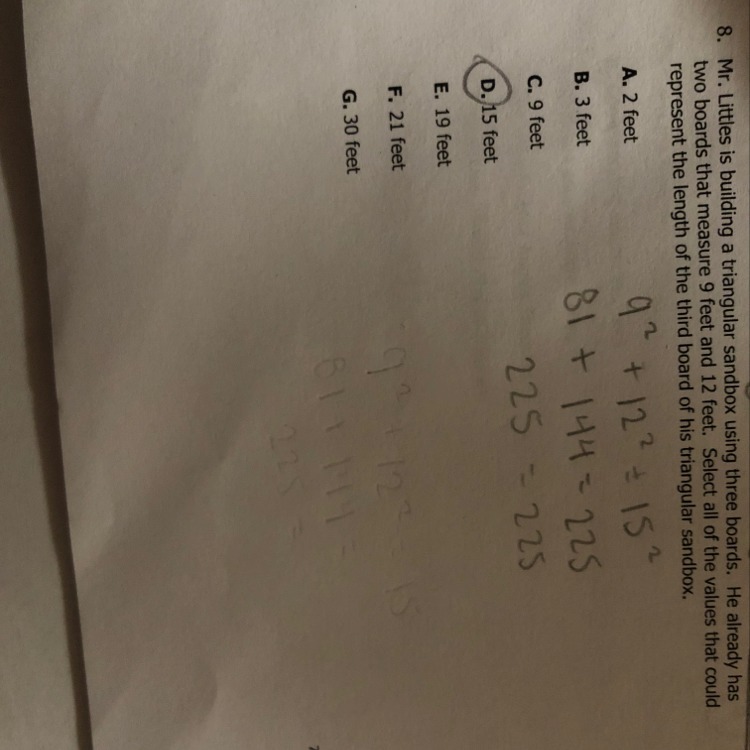 8. Mr. Littles is building a triangular sandbox using three boards. He already has
two boards that measure 9 feet and 12 feet. Select all of the values that could
represent the length of the third board of his triangular sandbox.
A. 2 feet
B. 3 feet
C. 9 feet
D. 15 feet
E. 19 feet
F. 21 feet
G. 30 feet
9² + 12² = 15²
81 + 144 = 225
225 = 225
9² + 12² = 15
81 + 144 =
225 =